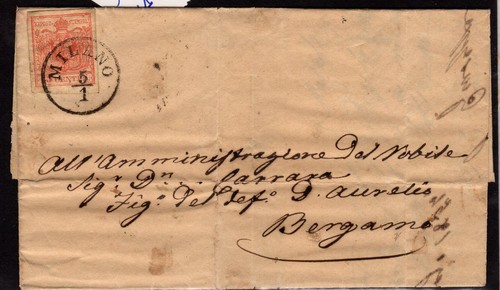 MILANO
5/1
All'Amministrazione Del Nobile
Sigr. Dn. Carrara
Figo. Del defo. D. Aurelio
Bergamo